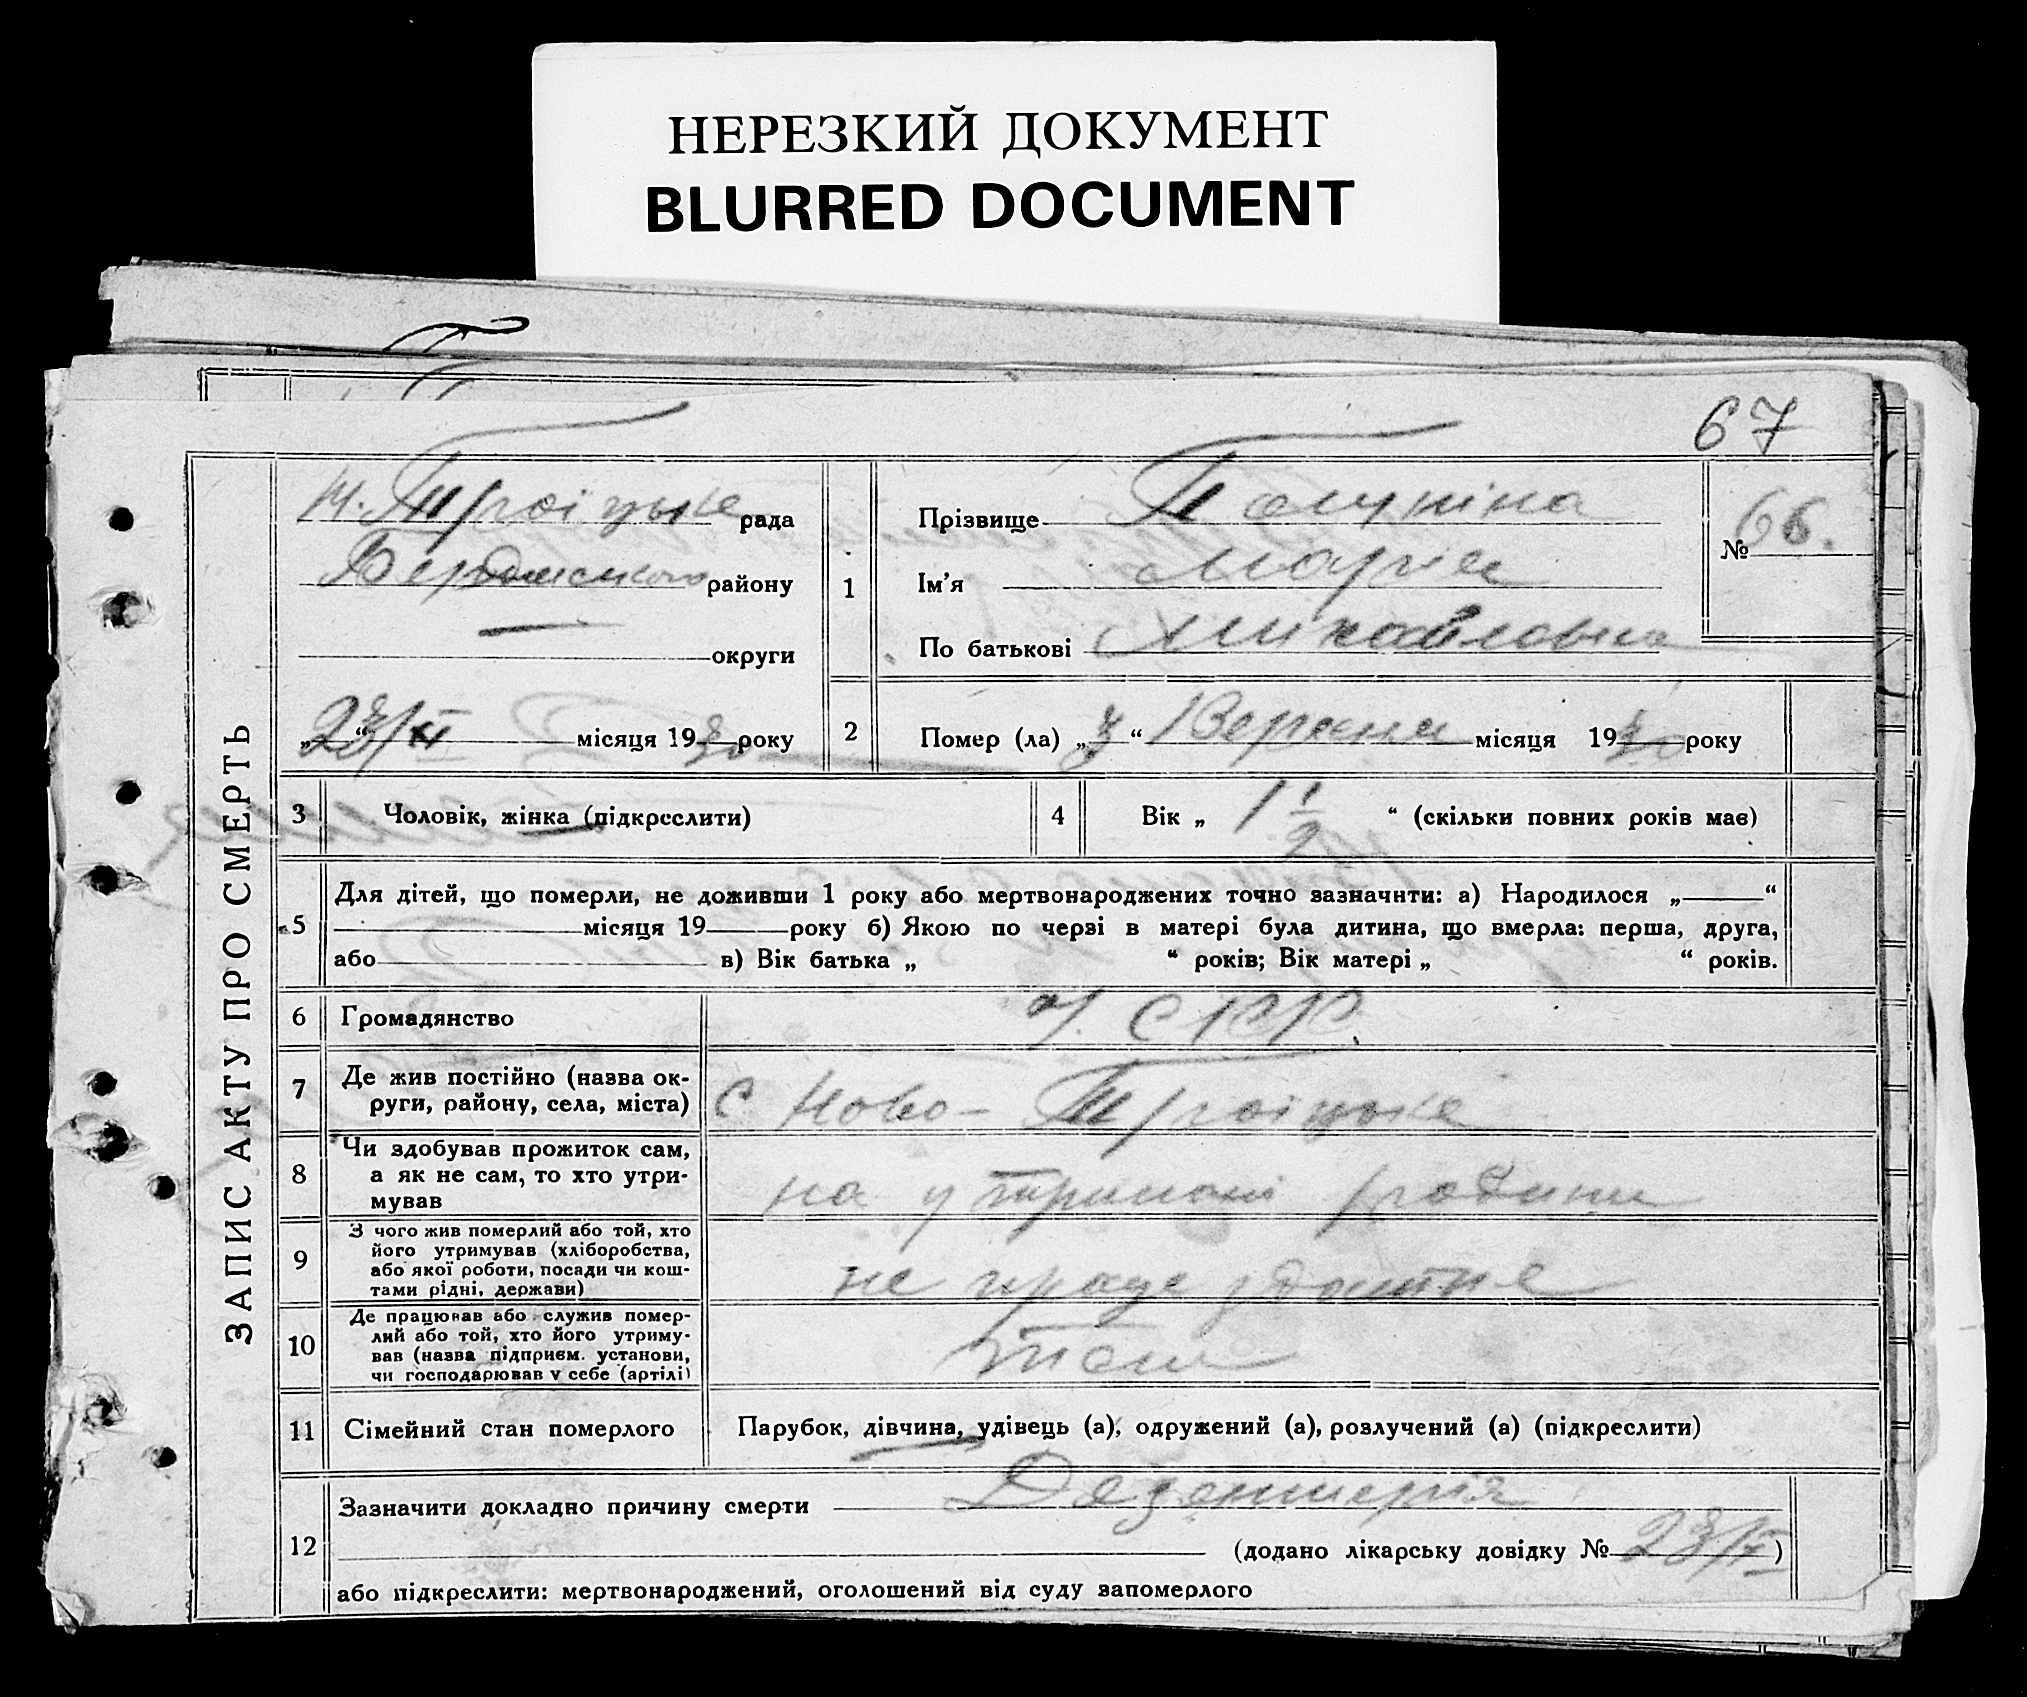 НЕРЕЗКИЙ ДОКУМЕНТ
BLURRED DOCUMENT
67
ЗАПИС АКТУ ПРО СМЕРТЬ
Н. Троїцьке рада
району
округи
23/ місяця 1930 року
1
Прізвище
Ім'я Марія
По батькові Михайловна
№ 66.
2
Помер (ла) „3“ Вересня місяця 1930 року
3 Чоловік, жінка (підкреслити)
4 Вік „ 1 1/2 “ (скільки повних років має)
5 Для дітей, що померли, не доживши 1 року або мертвонароджених точно зазначити: а) Народилося „ “
місяця 19 року б) Якою по черзі в матері була дитина, що вмерла: перша, друга,
або в) Вік батька „ “ років; Вік матері „ “ років.
6 Громадянство У. С Р Р.
7 Де жив постійно (назва ок-
руги, району, села, міста) с Ново-Троїцьке
8 Чи здобував прожиток сам,
а як не сам, то хто утри-
мував на утримані родини
9 З чого жив померлий або той, хто
його утримував (хліборобства,
або якої роботи, посади чи кош-
тами рідні, держави) не працездатне
10 Де працював або служив помер-
лий або той, хто його утриму-
вав (назва підприєм. установи,
чи господарював у себе (артілі)
11 Сімейний стан померлого Парубок, дівчина, удівець (а), одружений (а), розлучений (а) (підкреслити)
12 Зазначити докладно причину смерти
(додано лікарську довідку № 23/)
або підкреслити: мертвонароджений, оголошений від суду запомерлого